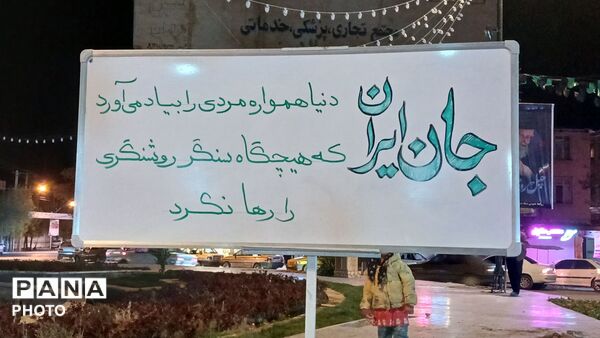 مجتمع تجاری،پزشکی،خدماتی
جان ایران
دنیا همواره مردی را بیاد می‌آورد
که هیچگاه سنگر روشنگری
را رها نکرد
PANA
PHOTO